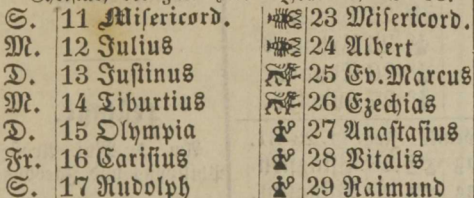 S. 11 Misericord. 23 Misericord.
M. 12 Julius 24 Albert
D. 13 Justinus 25 Ev. Marcus
M. 14 Tiburtius 26 Ezechias
D. 15 Olympia 27 Anastasius
Fr. 16 Carisius 28 Vitalis
S. 17 Rudolph 29 Raimund